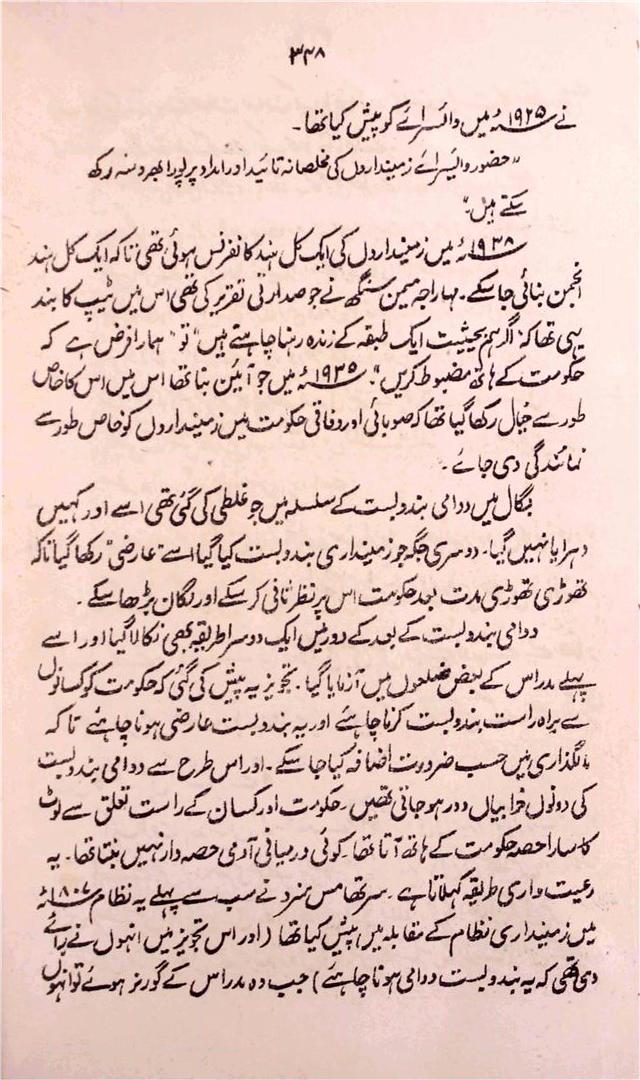 ۳۴۸
نے ۱۹۲۵ء میں وائسرائے کو پیش کیا تھا۔
"حضور وایسرائے زمینداروں کی مخلصانہ تائید اور امداد پر پورا بھروسہ رکھ
سکتے ہیں۔"
۱۹۳۸ء میں زمینداروں کی ایک کل ہند کانفرنس ہوئی تھی تاکہ ایک کل ہند
انجمن بنائی جا سکے۔ مہاراجہ میمن سنگھ نے جو صدارتی تقریر کی تھی اس میں ٹیپ کا بند
یہی تھا کہ "اگر ہم بحیثیت ایک طبقہ کے زندہ رہنا چاہتے ہیں" تو "ہمارا فرض ہے کہ
حکومت کے ہاتھ مضبوط کریں"۔ ۱۹۳۵ء میں جو آئین بنا تھا اس میں اس کا خاص
طور سے خیال رکھا گیا تھا کہ صوبائی اور وفاقی حکومت میں زمینداروں کو خاص طور سے
نمائندگی دی جائے۔
بنگال میں دوامی بندوبست کے سلسلہ میں جو غلطی کی گئی تھی اسے اور کہیں
دہرایا نہیں گیا۔ دوسری جگہ جو زمینداری بندوبست کیا گیا اسے "عارضی" رکھا گیا تاکہ
تھوڑی تھوڑی مدت بعد حکومت اس پر نظرثانی کر سکے اور لگان بڑھا سکے۔
دوامی بندوبست کے بعد کے دور میں ایک دوسرا طریقہ بھی نکالا گیا اور اسے
پہلے مدراس کے بعض ضلعوں میں آزمایا گیا۔ تجویز یہ پیش کی گئی کہ حکومت کو کسانوں
سے براہ راست بندوبست کرنا چاہئے اور یہ بندوبست عارضی ہونا چاہئے تاکہ
مالگذاری میں حسب ضرورت اضافہ کیا جا سکے۔ اور اس طرح سے دوامی بندوبست
کی دونوں خرابیاں دور ہو جاتی تھیں۔ حکومت اور کسان کے راست تعلق سے لوٹ
کا سارا حصہ حکومت کے ہاتھ آتا تھا۔ کوئی درمیانی آدمی حصہ دار نہیں بنتا تھا۔ یہ
رعیت واری طریقہ کہلاتا ہے۔ سر تھامس منرو نے سب سے پہلے یہ نظام ۱۸۰۷ء
میں زمینداری نظام کے مقابلہ میں پیش کیا تھا (اور اس تجویز میں انہوں نے رائے
دی تھی کہ یہ بندوبست دوامی ہونا چاہئے) جب وہ مدراس کے گورنر ہوئے تو انہوں